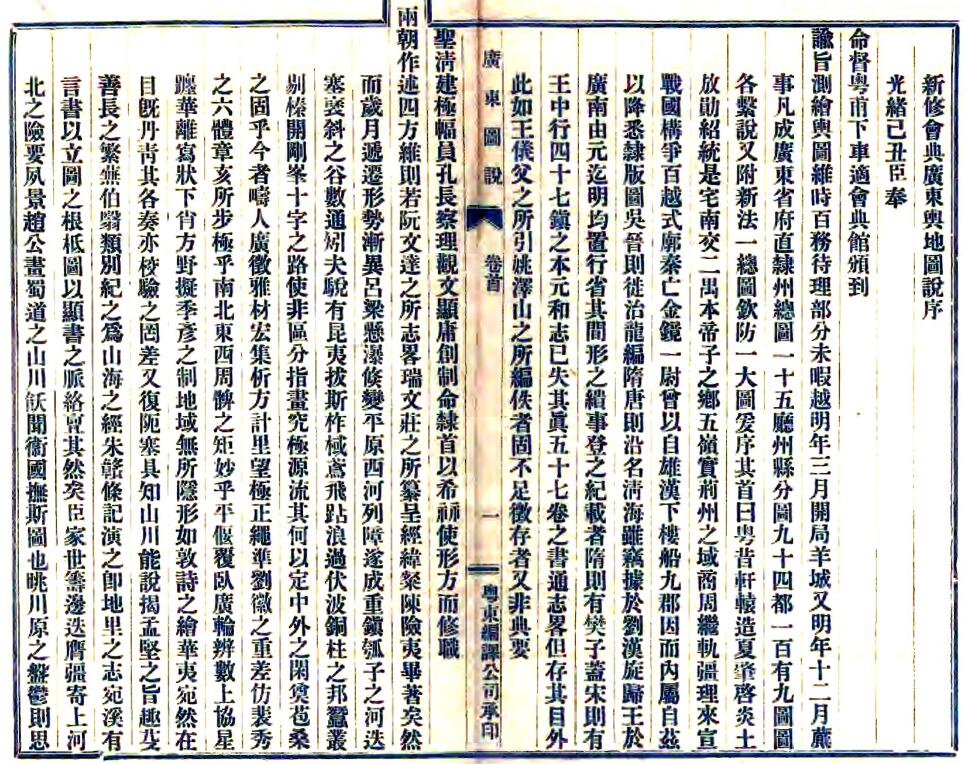 新修會典廣東輿地圖說序
光緒己丑臣奉
命督粵甫下車適會典館頒到
諭旨測繪輿圖維時百務待理部分未暇越明年三月開局羊城又明年十二月蕆
事凡成廣東省府直隸州總圖一十五廳州縣分圖九十四都一百有九圖圖
各繫說又附新法一總圖欽防一大圖爰序其首曰粵昔軒轅造夏肇啓炎土
放勛紹統是宅南交二禺本帝子之鄉五嶺實荊州之域商周繼軌疆理來宣
戰國構爭百越式廓秦亡金鏡一尉曾以自雄漢下樓船九郡因而內屬自茲
以降悉隸版圖吳晉則徙治龍編隋唐則沿名淸海雖竊據於劉漢旋歸王於
廣南由元迄明均置行省其間形之繢事登之紀載者隋則有樊子蓋宋則有
王中行四十七鎭之本元和志已失其眞五十七卷之書通志畧但存其目外
此如王儀父之所引姚澤山之所編佚者固不足徵存者又非典要
聖淸建極幅員孔長察理觀文顯庸創制命隸首以希祘使形方而修職
兩朝作述四方維則若阮文達之所志畧瑞文莊之所纂呈經緯粲陳險夷畢著矣然
而歲月遞遷形勢漸異呂梁懸瀑倏變平原西河列障遂成重鎭瓠子之河迭
塞褒斜之谷數通矧夫駾有昆夷拔斯柞棫鳶飛跕浪過伏波銅柱之邦蠶叢
剔榛開剛峯十字之路使非區分指畫究極源流其何以定中外之閑奠苞桑
之固乎今者疇人廣徵雅材宏集斫方計里望極正繩準劉徽之重差仿裴秀
之六體章亥所步極乎南北東西周髀之矩妙乎平偃覆臥廣輪辨數上協星
躔華離寫狀下肖方野擬季彥之制地域無所隱形如敦詩之繪華夷宛然在
目旣丹靑其各奏亦校驗之罔差又復阨塞具知山川能說揭孟堅之旨趣芟
善長之繁蕪伯翳類別紀之爲山海之經朱贛條記演之卽地里之志宛溪有
言書以立圖之根柢圖以顯書之脈絡亶其然矣臣家世籌邊迭膺疆寄上河
北之險要夙景趙公畫蜀道之山川飫聞衞國撫斯圖也眺川原之盤鬱則思
廣東圖說
卷首
一
粵東編譯公司承印